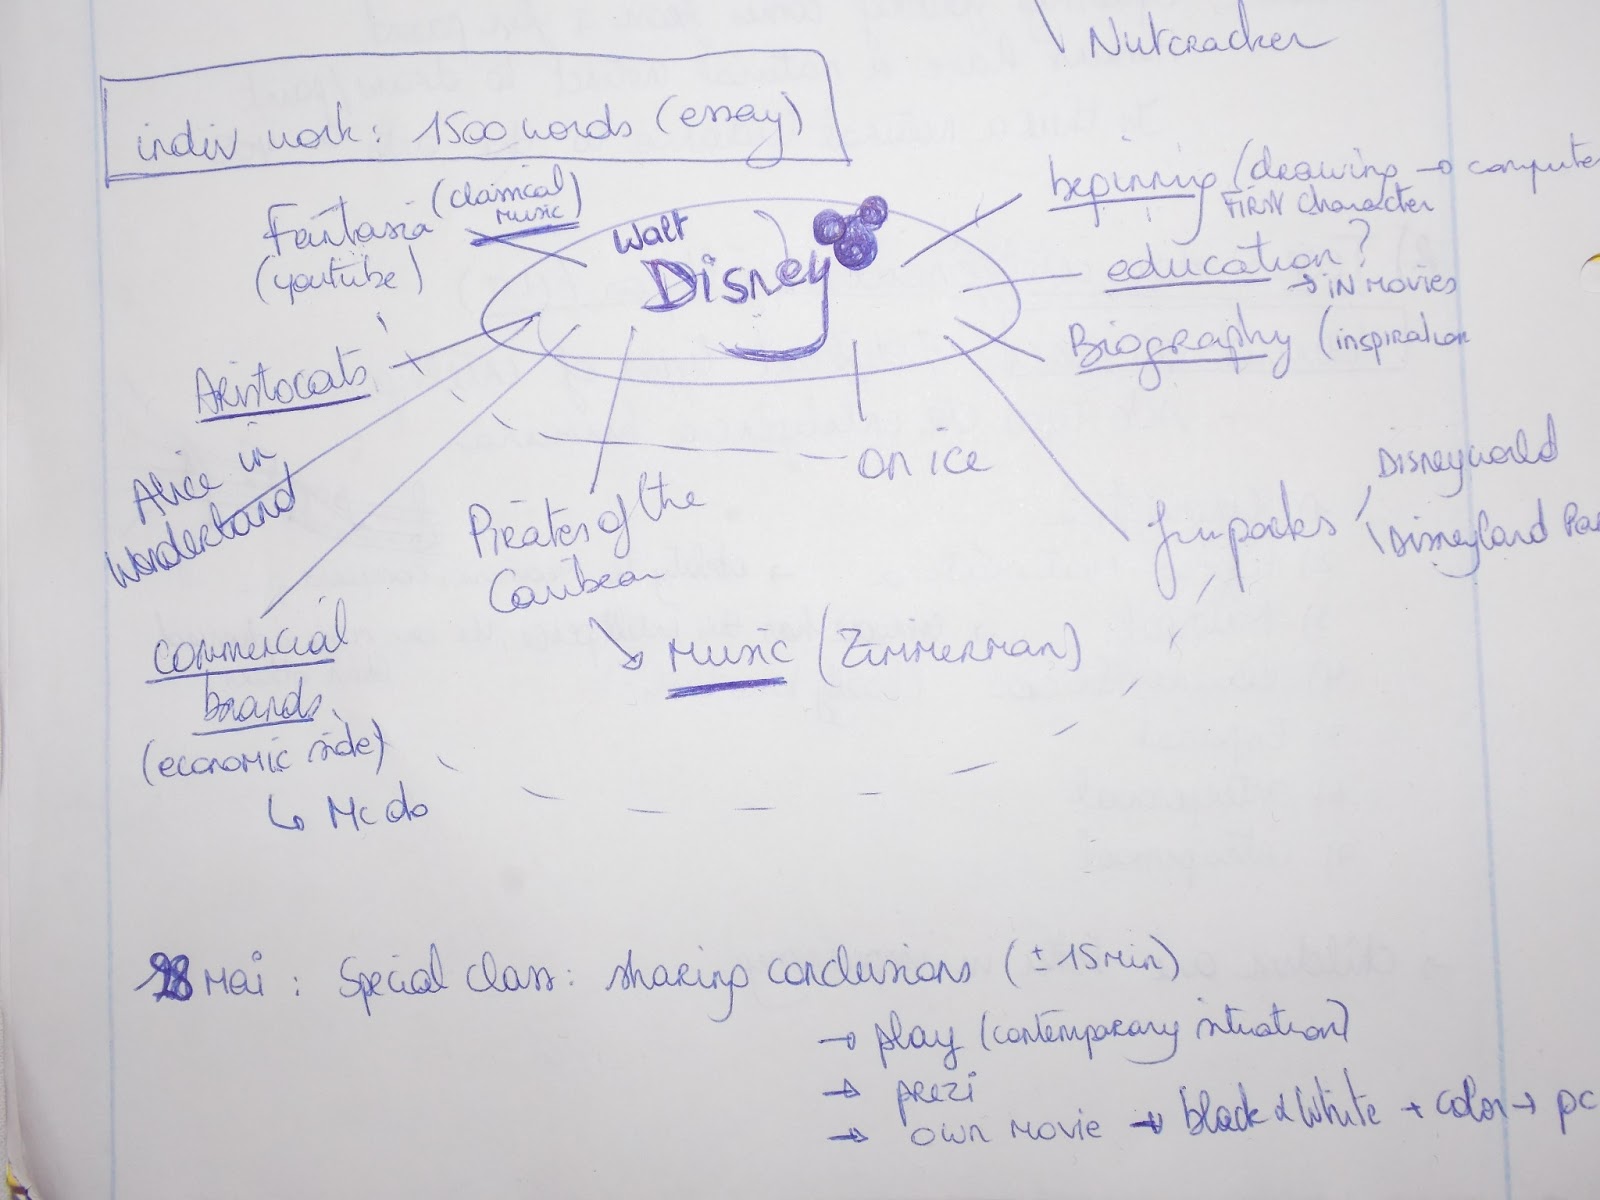 Nutcracker
indiv work: 1500 words (essay)
Fantasia (classical music)
(youtube)
Walt
Disney
beginning (drawing → compute
FIRST character
education?
→ IN MOVIES
Biography (inspiration
Aristocats
Alice in
Wonderland
Pirates of the
Caribean
→ MUSIC (ZIMMERMAN)
on ice
funparks
Disneyworld
Disneyland Par
commercial
brands
(economic side)
↳ Mc do
28 Mai : Special class : sharing conclusions (± 15 min)
→ play (contemporary situation)
→ prezi
→ own movie → black & white + color → pc